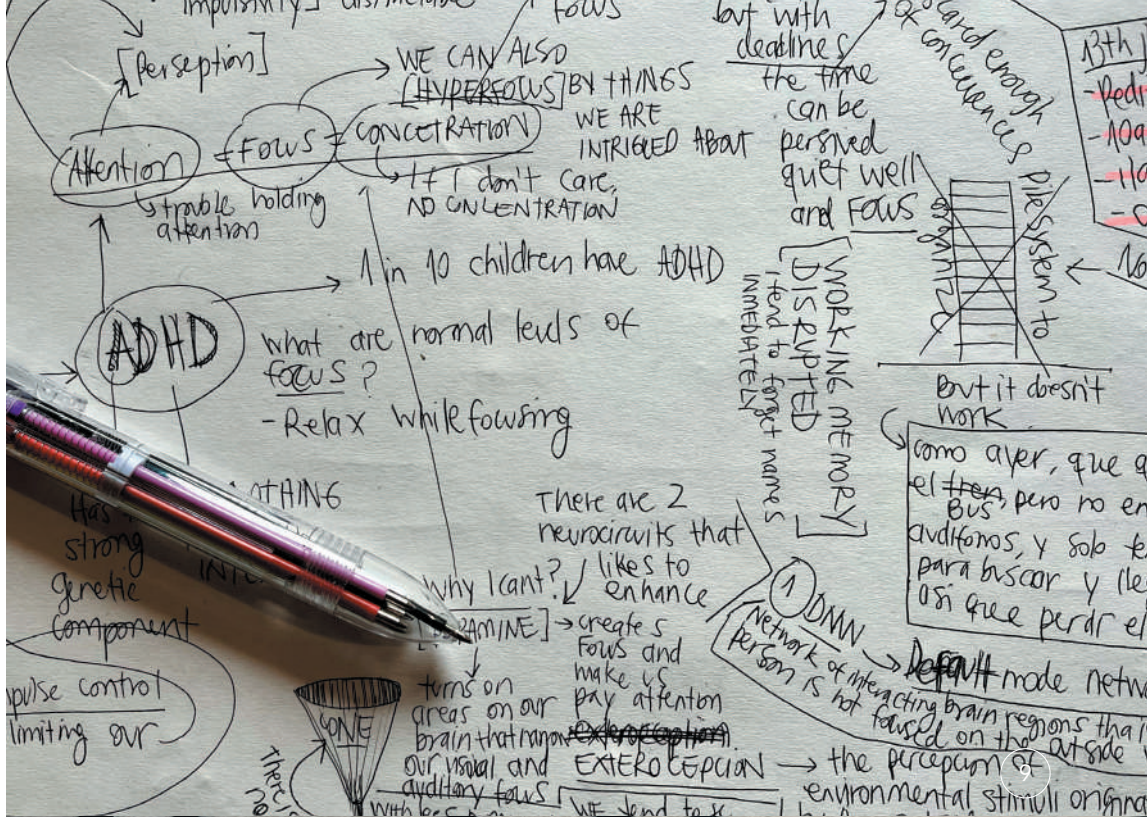 impulsivity
[Perseption]
Attention = FOWS = CONCETRATION
trouble holding
attention
WE CAN ALSO
[HYPERFOWS] BY THINGS
WE ARE
INTRIGUED ABOUT
If I don't care,
NO CONCENTRATION
FOWS
but with
deadlines
the time
can be
persived
quiet well
and FOWS
and enough
of concuences
pile system to
organize
But it doesn't
work
13th
ADHD
1 in 10 children have ADHD
what are normal levels of
focus?
- Relax while focusing
[WORKING MEMORY
DISRUPTED]
I tend to forget names
INMEDIATELY
como ayer, que
el tren, pero no en
BUS
audifonos, y solo
para buscar y
asi quee perdr el
Has
strong
genetic
component
impulse control
limiting our
There are 2
neurocircuits that
likes to
enhance
why I cant?
creates
Fows and
make us
pay attention
turns on
areas on our
brain that narrow
our visual and
auditory fows
CONE
exteroception
EXTEROCEPCION → the percepcion of
environmental stimuli
WE tend to
1 DMN
Default mode
Network of interacting brain regions that
person is not focused on the outside
9